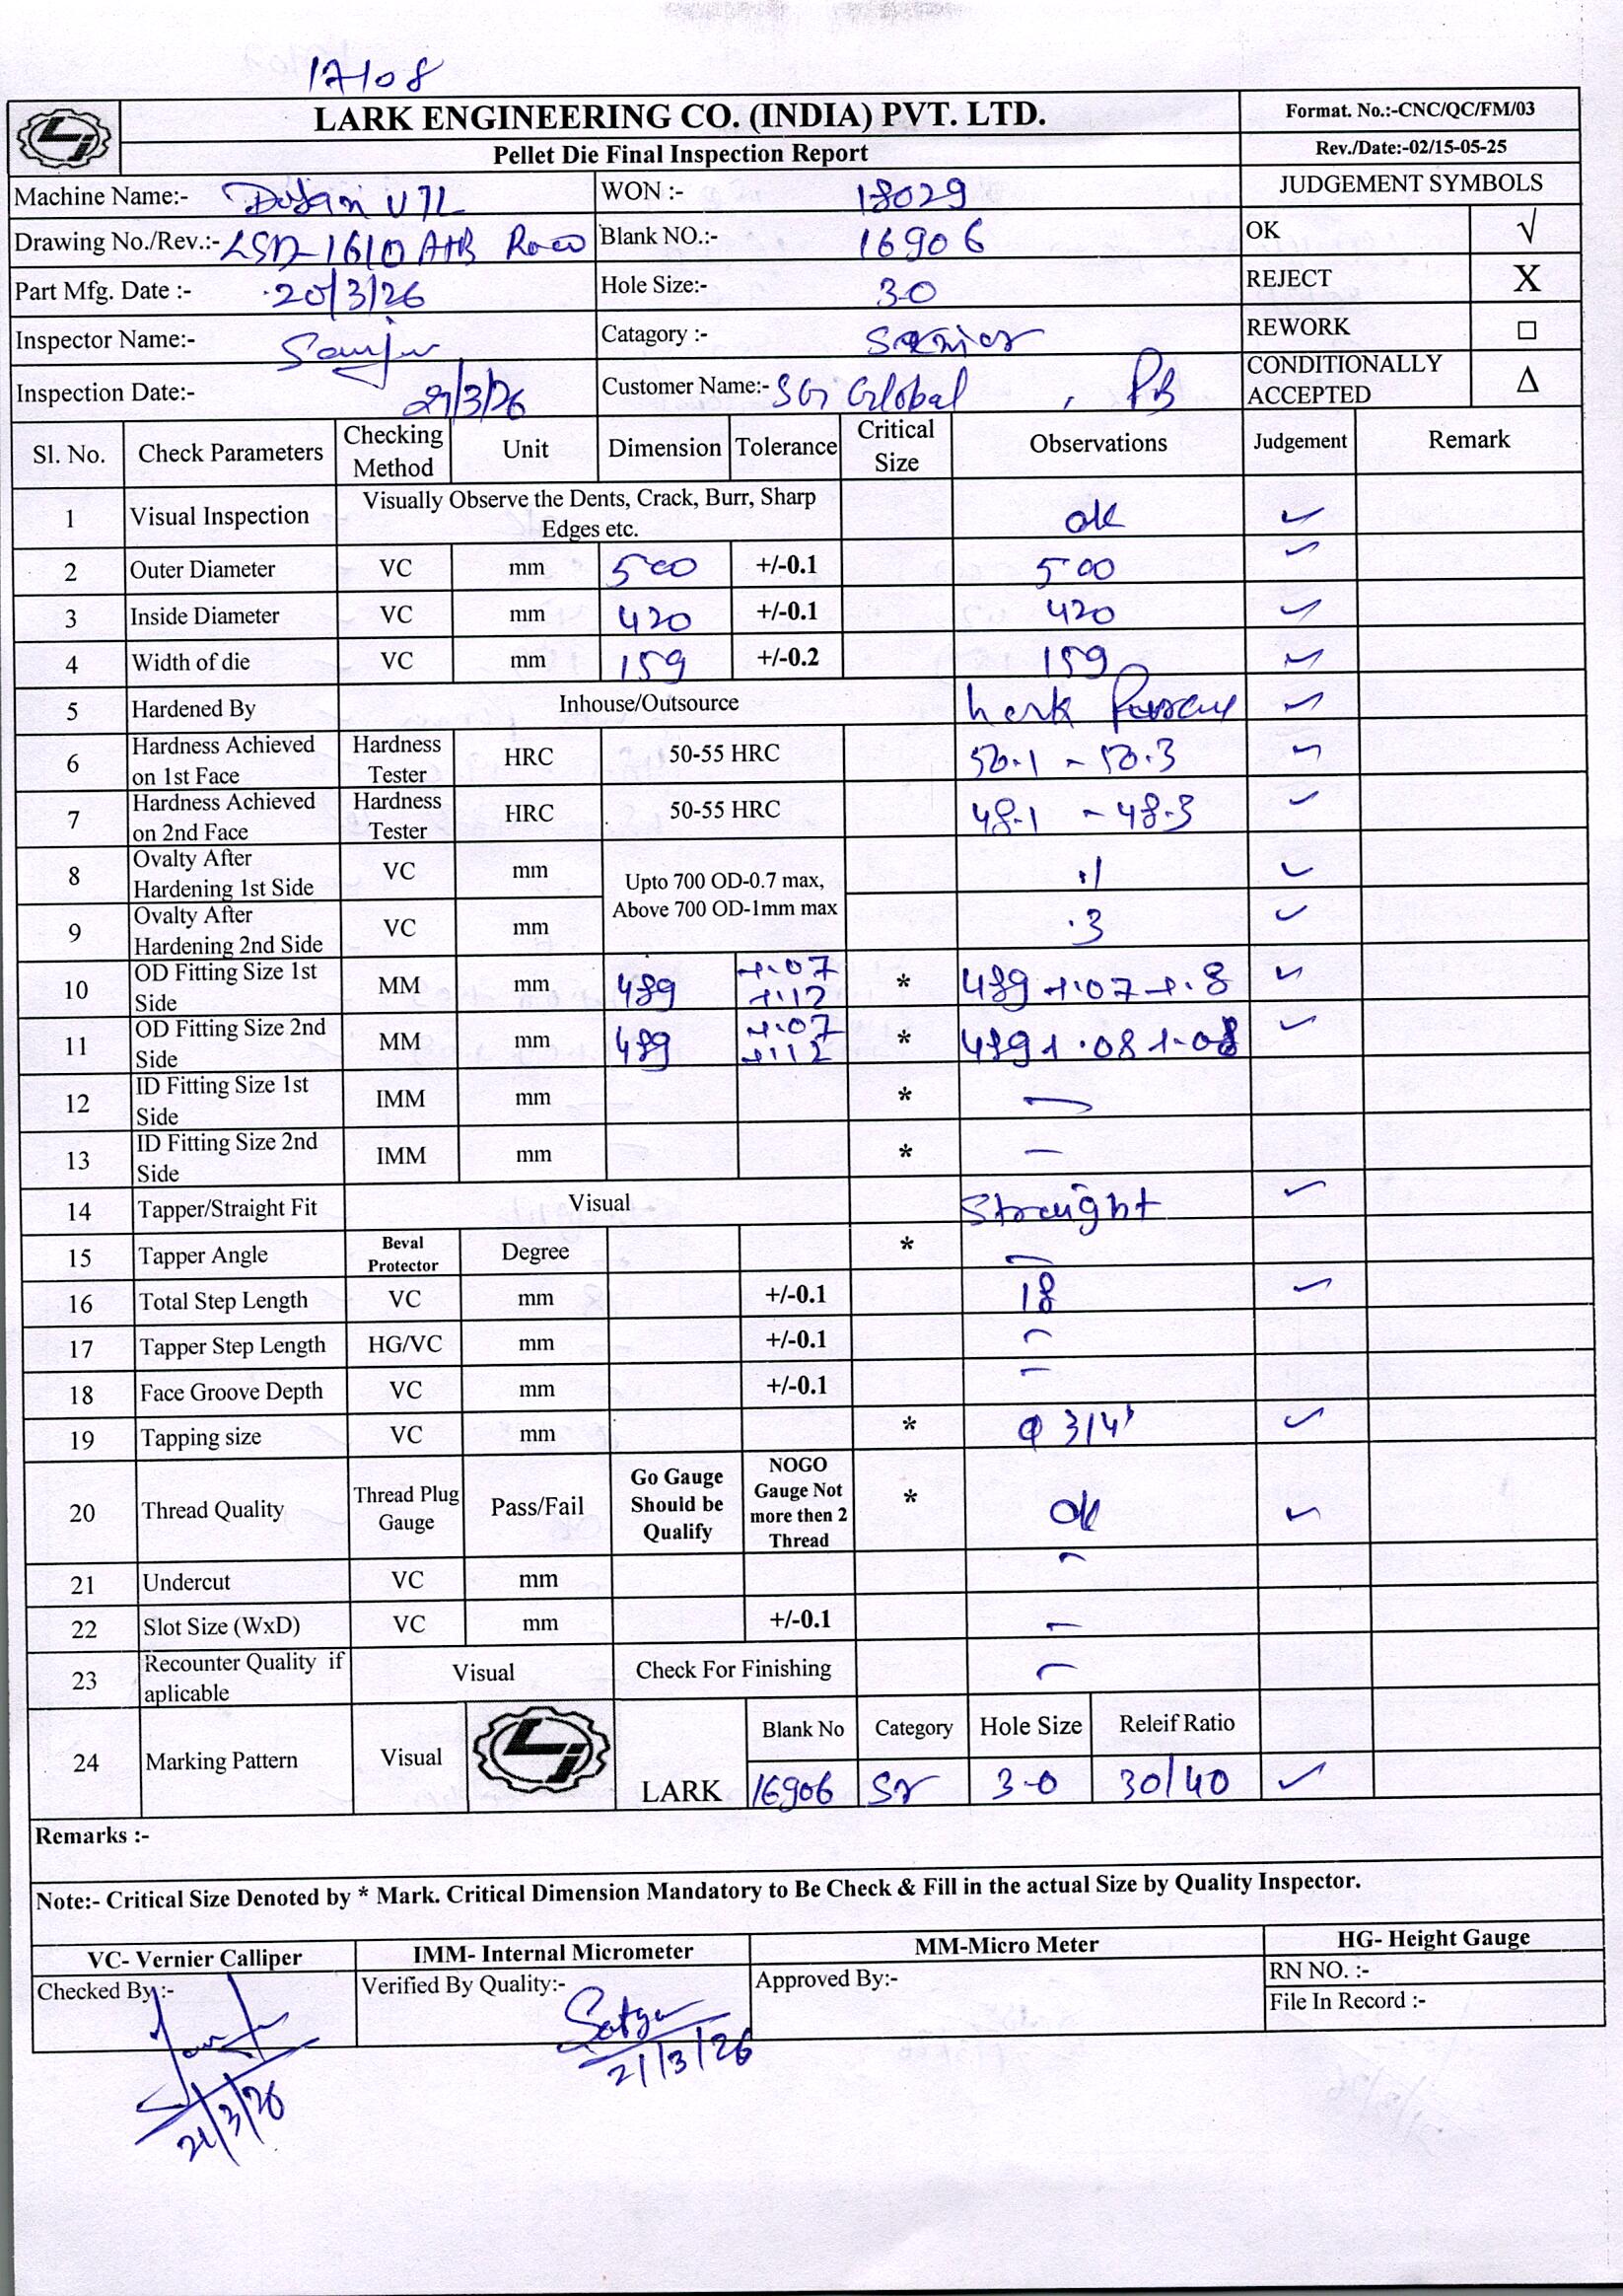 17108
LARK ENGINEERING CO. (INDIA) PVT. LTD.
Format. No.:-CNC/QC/FM/03
Pellet Die Final Inspection Report
Rev./Date:-02/15-05-25
Machine Name:-
WON :- 18029
JUDGEMENT SYMBOLS
Drawing No./Rev.:- LSD-1610 A+B
Blank NO.:- 16906
OK √
Part Mfg. Date :- 20/3/26
Hole Size:- 3.0
REJECT X
Inspector Name:- Sanju
Catagory :- Senior
REWORK □
Inspection Date:- 21/3/26
Customer Name:- SGi Global , PB
CONDITIONALLY ACCEPTED Δ
Sl. No. Check Parameters Checking Method Unit Dimension Tolerance Critical Size Observations Judgement Remark
1 Visual Inspection Visually Observe the Dents, Crack, Burr, Sharp Edges etc. ok ✓
2 Outer Diameter VC mm 500 +/-0.1 500 ✓
3 Inside Diameter VC mm 420 +/-0.1 420 ✓
4 Width of die VC mm 159 +/-0.2 159 ✓
5 Hardened By Inhouse/Outsource Lark ✓
6 Hardness Achieved on 1st Face Hardness Tester HRC 50-55 HRC 50.1 - 50.3 ✓
7 Hardness Achieved on 2nd Face Hardness Tester HRC 50-55 HRC 48.1 - 48.3 ✓
8 Ovalty After Hardening 1st Side VC mm Upto 700 OD-0.7 max, Above 700 OD-1mm max .1 ✓
9 Ovalty After Hardening 2nd Side VC mm .3 ✓
10 OD Fitting Size 1st Side MM mm 489 +.07 +.12 * 489 +.07 +.8 ✓
11 OD Fitting Size 2nd Side MM mm 489 +.07 +.12 * 489 +.08 +.08 ✓
12 ID Fitting Size 1st Side IMM mm * —
13 ID Fitting Size 2nd Side IMM mm * —
14 Tapper/Straight Fit Visual Straight ✓
15 Tapper Angle Beval Protector Degree * —
16 Total Step Length VC mm +/-0.1 18 ✓
17 Tapper Step Length HG/VC mm +/-0.1 —
18 Face Groove Depth VC mm +/-0.1 —
19 Tapping size VC mm * φ 3/4" ✓
20 Thread Quality Thread Plug Gauge Pass/Fail Go Gauge Should be Qualify NOGO Gauge Not more then 2 Thread * ok ✓
21 Undercut VC mm —
22 Slot Size (WxD) VC mm +/-0.1 —
23 Recounter Quality if aplicable Visual Check For Finishing —
24 Marking Pattern Visual LARK Blank No Category Hole Size Releif Ratio
16906 Sr 3.0 30/40 ✓
Remarks :-
Note:- Critical Size Denoted by * Mark. Critical Dimension Mandatory to Be Check & Fill in the actual Size by Quality Inspector.
VC- Vernier Calliper IMM- Internal Micrometer MM-Micro Meter HG- Height Gauge
Checked By :- Verified By Quality:- Approved By:- RN NO. :-
File In Record :-
Satya
21/3/26
21/3/26